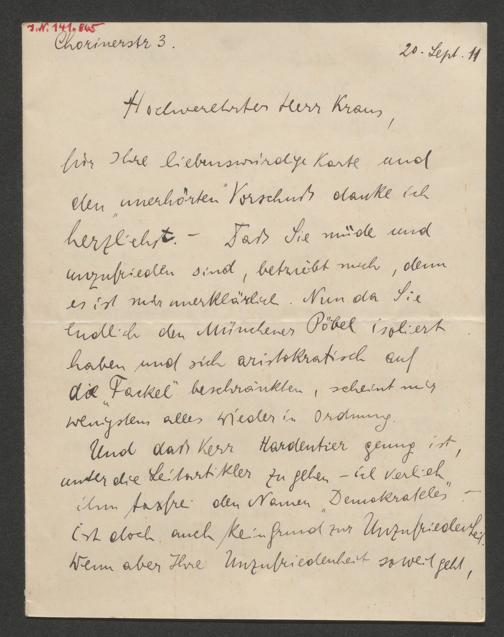 J.N. 141.865
Chorinerstr 3.
20. Sept. 11
Hochverehrter Herr Kraus,
für Ihre liebenswürdige Karte und
den "unerhörten" Vorschuß danke ich
herzlichst. – Daß Sie müde und
unzufrieden sind, betrübt mich, denn
es ist mir unerklärlich. Nun da Sie
endlich den Münchener Pöbel isoliert
haben und sich aristokratisch auf
die „Fackel" beschränkten, scheint mir
wenigstens alles wieder in Ordnung.
Und daß Herr Hardentier genug ist,
unter die Leitartikler zu gehen – ich verlieh
ihm taxfrei den Namen „Demokrateles" –
ist doch auch kein Grund zur Unzufriedenheit.
Wenn aber Ihre Unzufriedenheit so weit geht,